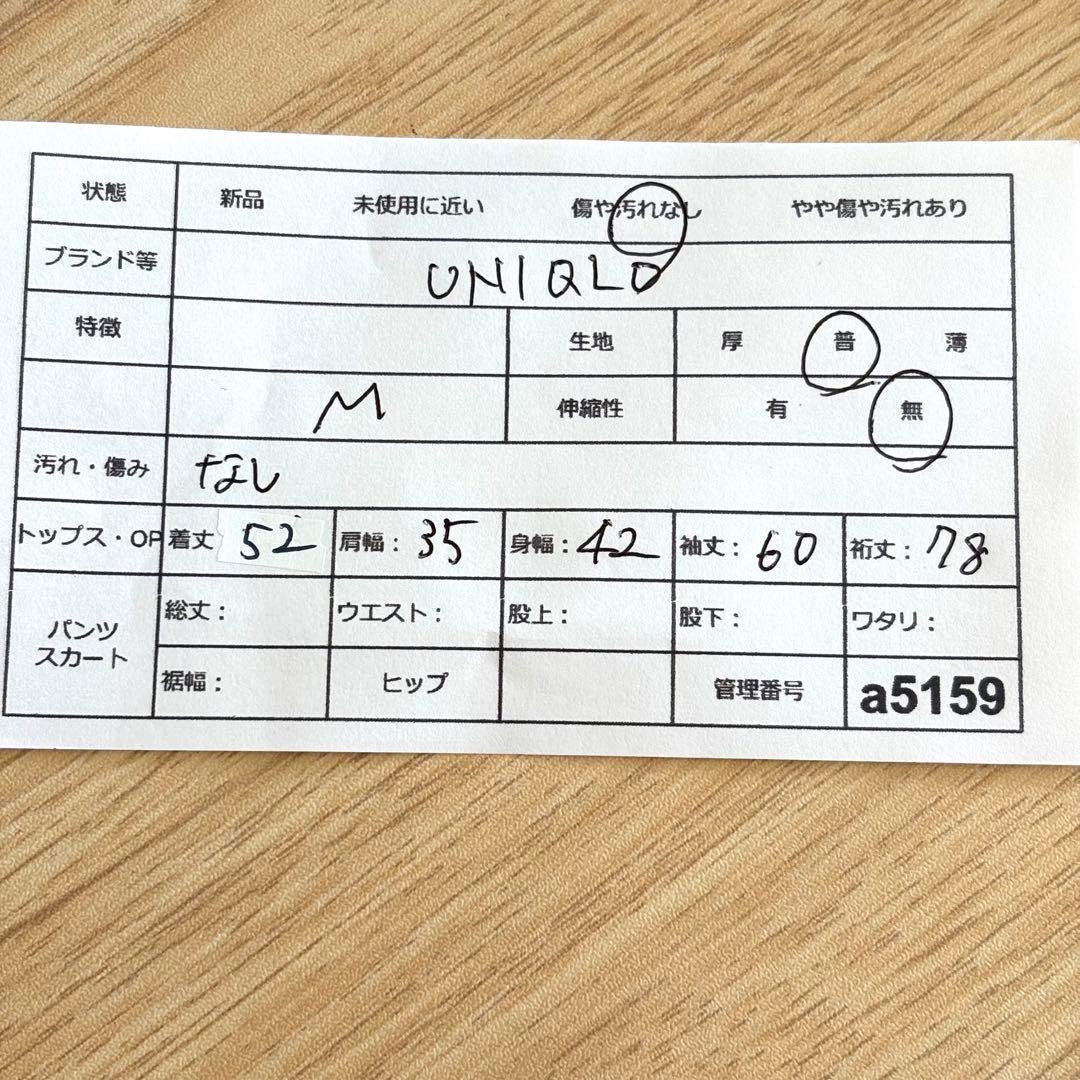 状態 新品 未使用に近い 傷や汚れなし やや傷や汚れあり
ブランド等 UNIQLO
特徴 生地 厚 普 薄
M 伸縮性 有 無
汚れ・傷み なし
トップス・OP 着丈 52 肩幅: 35 身幅: 42 袖丈: 60 裄丈: 78
パンツ スカート 総丈: ウエスト: 股上: 股下: ワタリ:
裾幅: ヒップ 管理番号 a5159